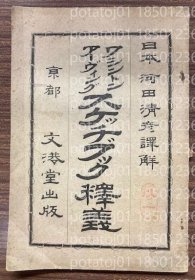 日本 河田清彦譯解
ワシントン
アーウィング
スケッチブック釋義
京都 文港堂出版
potato01 1185012350